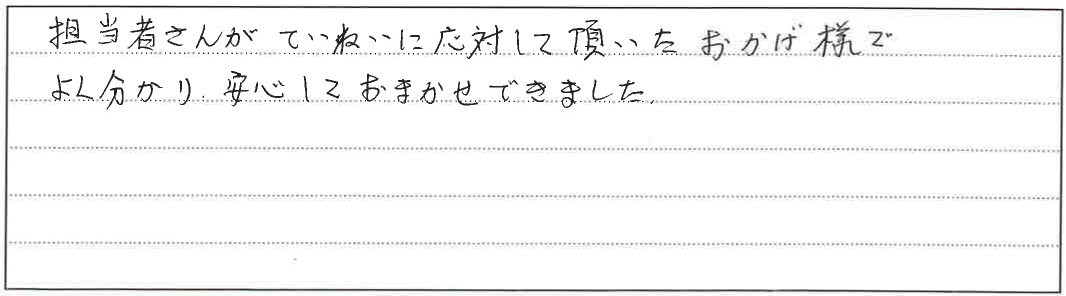 担当者さんがていねいに応対して頂いたおかげ様で
よく分かり、安心しておまかせできました。